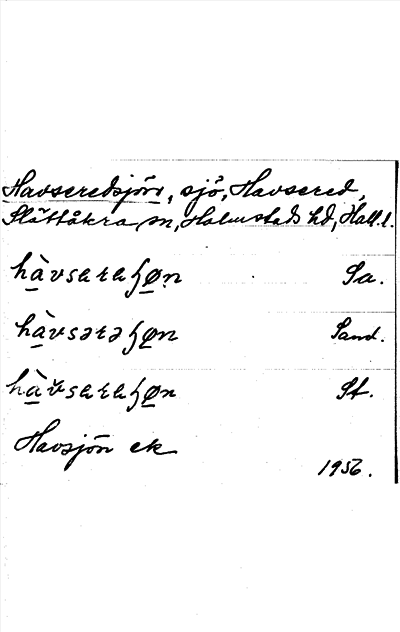 Havseredsjön, sjö, Havsered,
Slättåkra sn, Halmstads hd, Hall. l.
hàvsaraɧøn Sa.
hàvsərəɧøn Sand.
hàvsaraɧøn St.
Havsjön ek
1956.